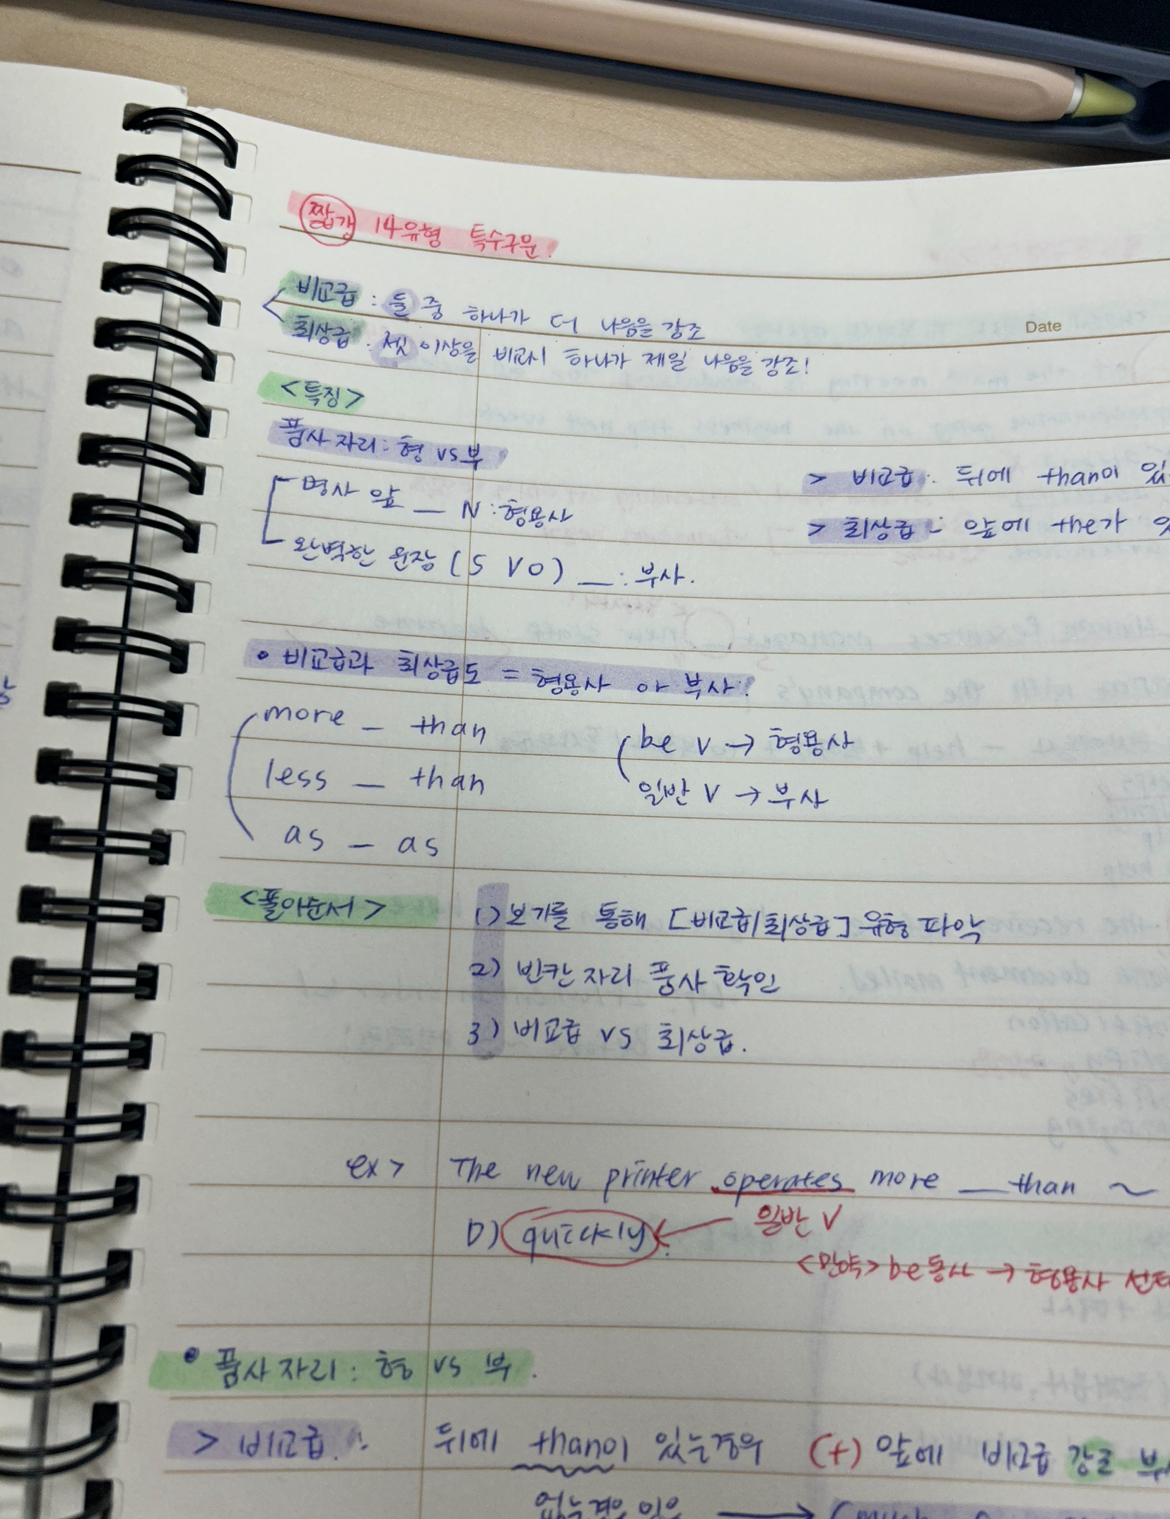 짭갱 14유형 특수구문
비교급 : 둘 중 하나가 더 나음을 강조
Date
최상급 : 셋 이상을 비교시 하나가 제일 나음을 강조!
<특징>
품사 자리 : 형 vs 부
> 비교급 : 뒤에 than이 있
명사 앞 __ N : 형용사
> 최상급 : 앞에 the가 있
완벽한 문장 (S V O) __ : 부사.
• 비교급과 최상급도 = 형용사 or 부사!
more _ than
be V → 형용사
less _ than
일반 V → 부사
as _ as
<풀이순서>
1) 보기를 통해 [비교급/최상급] 유형 파악
2) 빈칸 자리 품사 확인
3) 비교급 vs 최상급.
ex> The new printer operates more __ than ~
D) quickly ← 일반 V
<만약> be동사 → 형용사 선택
• 품사 자리 : 형 vs 부.
> 비교급 : 뒤에 than이 있는경우 (+) 앞에 비교급 강조 부사
없는경우 있음 → (much